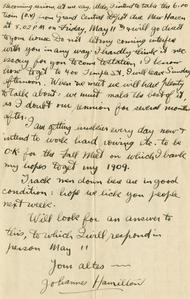 becoming union at our say. And I intend to take the 6:00
train (PM) from Grand Central & get due New Haven
at 7:02 PM on Friday, May 11. You will go ahead
to your home. Do not let my coming interfere
with you in any way. I hardly think it nec-
essary for you to come to station. I know
how to get to you Temple St. I will leave Sunday
afternoon. When we meet we will have plenty
to talk about: we must make the best of it
as I doubt our reunion for several months
after.
I am getting unsettled every day now. I
intend to work hard, rowing etc. to be
O.K. for the Fall Meet on which I bank
my hopes to get my 1909.
Track men down here are in good
condition: hope we lick you people
next week.
Will look for an answer to
this, to which I will respond in
person May 11
Yours altes —
Johannes Hamilton